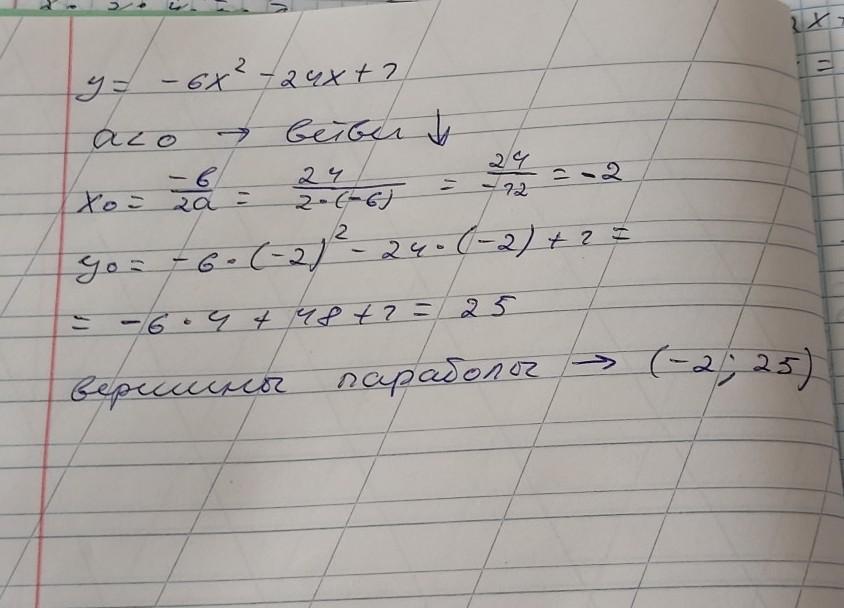 y = -6x² - 24x + 1
a < 0 → ветви ↓
x₀ = -b/2a = 24/2·(-6) = 24/-12 = -2
y₀ = -6·(-2)² - 24·(-2) + 1 =
= -6·4 + 48 + 1 = 25
вершины параболы → (-2; 25)